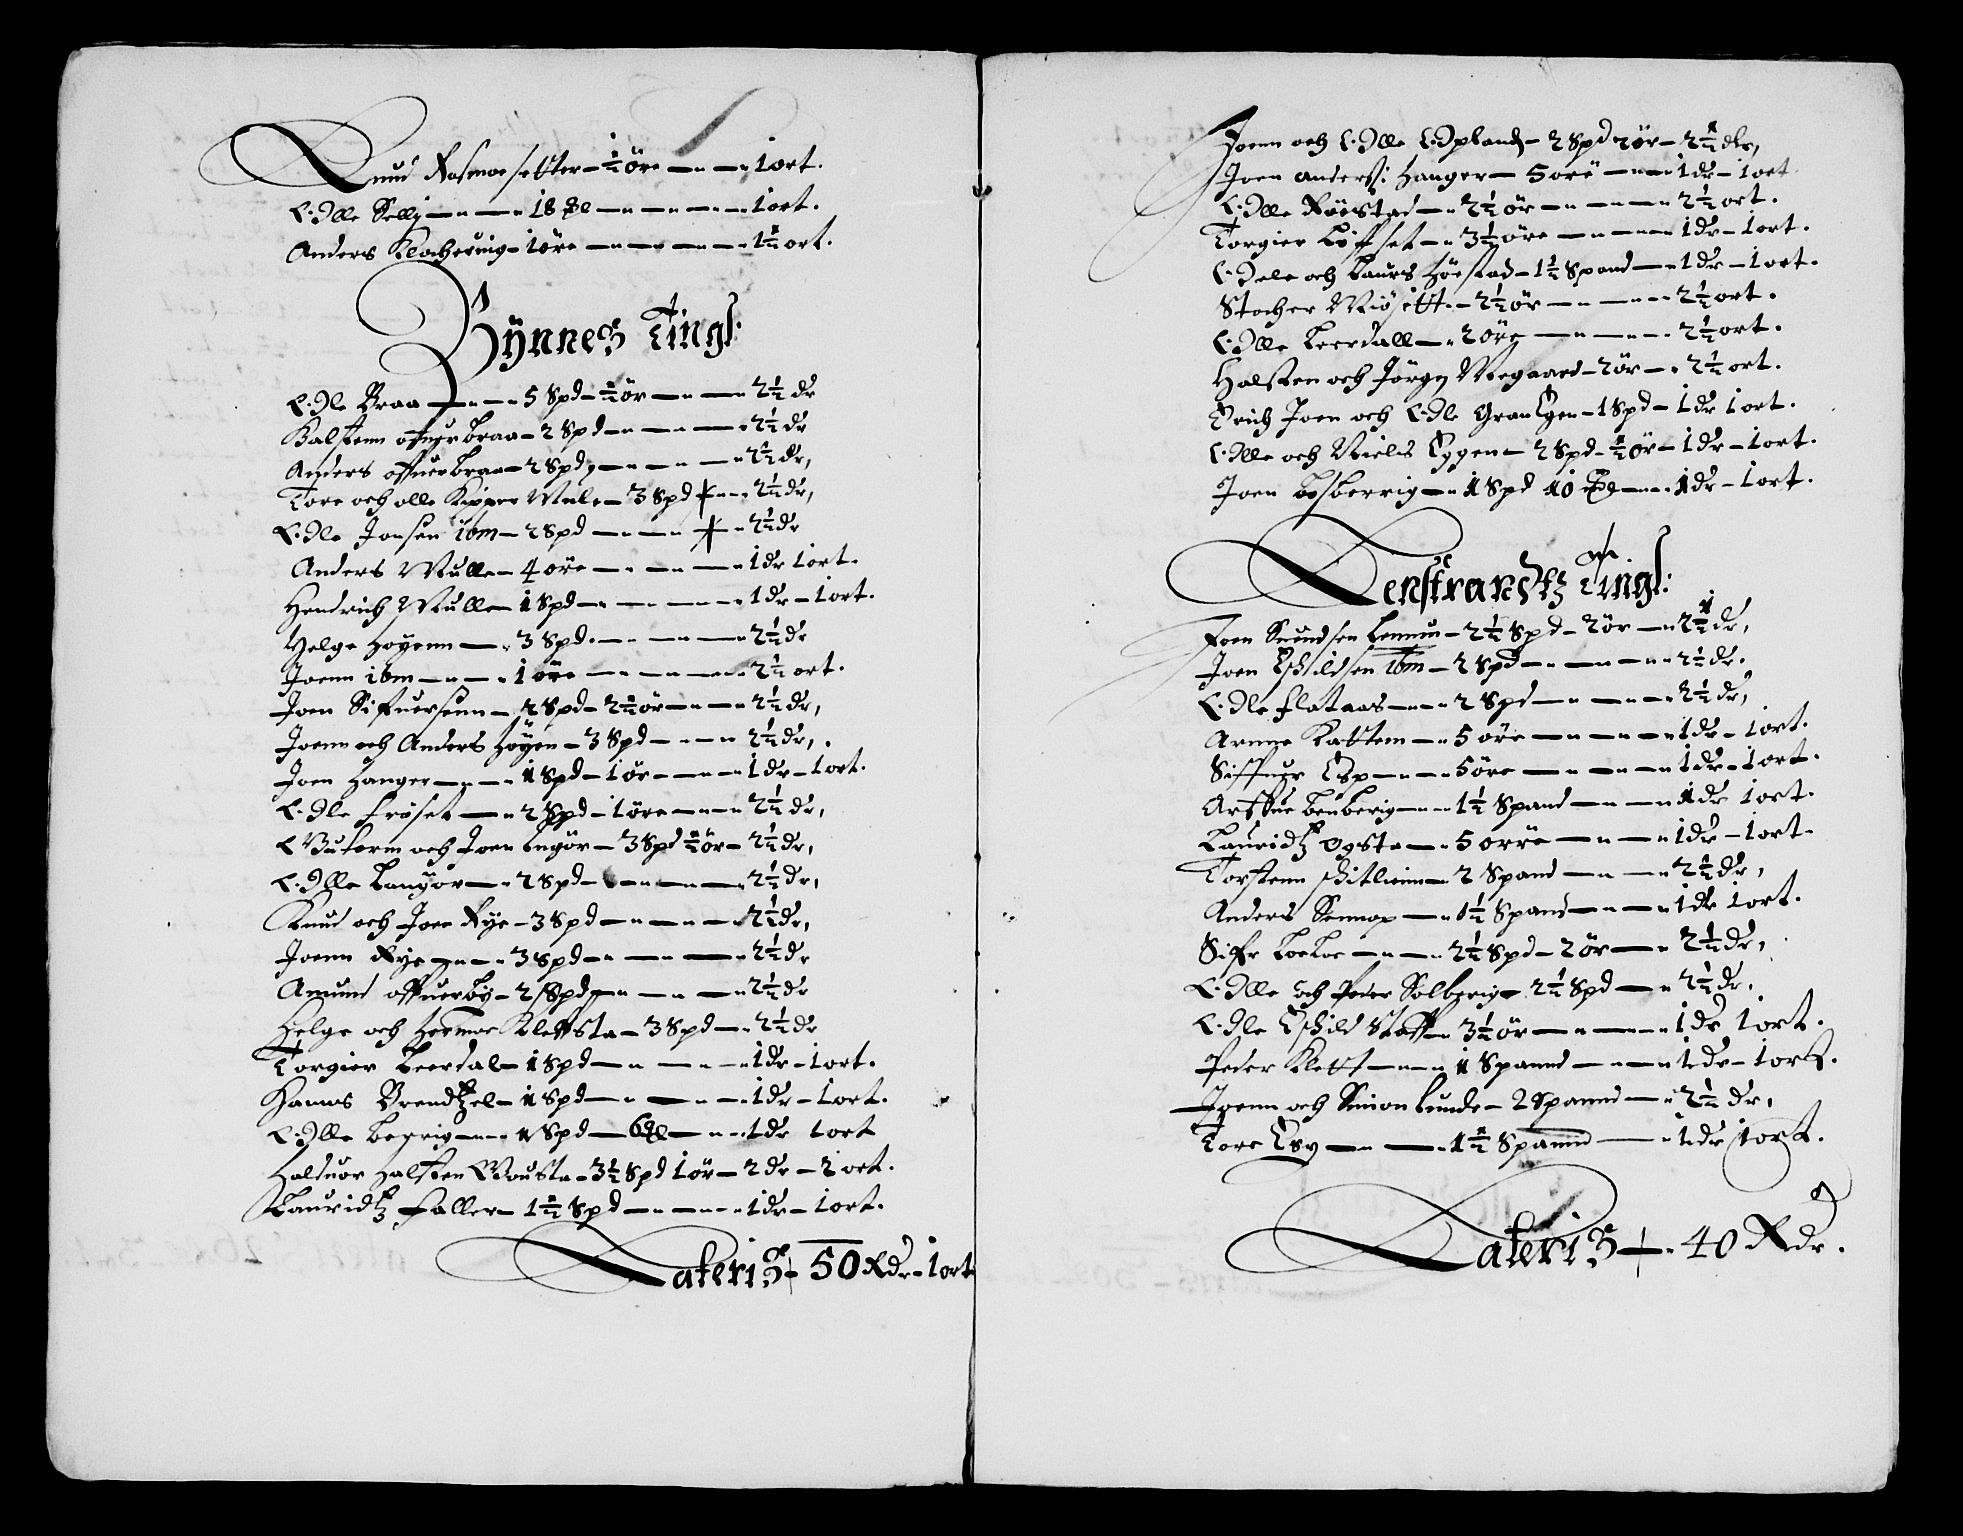 Knud Rosmosetter – ½ öre – – 1 ort.
Olle Selli – – 18 – – – 1 ort.
Anders Klochering – 1 öre – – – 1½ ort.
Bÿnnes Tingl:
Ole Braa – – 5 Spd – ½ ör – – 2½ dr
Halstenn offuerbraa – 2 Spd – – – 2½ dr
Anders offuerbraa – 2 Spd, – – – 2½ dr,
Tore och olle Kipper Mule – 3 Spd – – 2½ dr,
Ole Jonsen ibm – 2 Spd – – – 2½ dr
Anders Mulle – 4 öre – – – 1 dr 1 ort.
Hendrich Mulle – 1 Spd – – – – 1 dr – 1 ort.
Helge Høyenn – 3 Spd. – – – 2½ dr
Joenn ibm – – 1 öre – – – 2½ ort.
Joen Sifuersenn – 2 Spd – 2½ ör – – 2½ dr,
Joenn och Anders Höyen – 3 Spd – – 2½ dr,
Joen Hanger – – 1 Spd – 1 ör – – 1 dr – 1 ort.
Ole Fröset – 2 Spd – 1 öre – – 2½ dr,
Guterm och Joen Lngör – 3 Spd ½ ör – 2½ dr,
Olle Langör – 2 Spd – – – 2½ dr,
Knud och Joen Rye – 3 Spd – – – 2½ dr,
Joenn Rye – – 3 Spd – – – 2½ dr
Amund offuerbÿ – 2 Spd – – – 2½ dr
Helge och Hermoe Klettsta – 3 Spd – 2½ dr
Torgier Leerdal – 1 Spd – – – 1 dr – 1 ort.
Hanns Brendtzel – 1 Spd – – – 1 dr – 1 ort.
Olle berrig – – 1 Spd – 6 – – 1 dr 1 ort
Halduor Halsten Rousta – 3½ Spd 1 ör – 2 dr – 2 ort.
Lauridtz Faller – 1½ Spd – – – 1 dr – 1 ort.
Lateris – 50 Rdr – 1 ort
Joenn och Olle Opland – 2 Spd 2 ör – 2½ dlr,
Joen anderss: Hanger – 5 öre – – 1 dr – 1 ort
Olle Röestad – 2½ ör – – – 2½ ort.
Torgier – 3½ öre – – – 1 dr – 1 ort.
Oele och Laurs Höestad – 1½ Spand – 1 dr – 1 ort.
Stocher Miösett. – 2½ ör – – – 2½ ort.
Olle Leerdall – 2 öre – – – 2½ ort.
Halsten och Jörgen Megaard – 2 ör – 2½ ort.
Erich Joen och Ole Gran Egen – 1 Spd – 1 dr 1 ort.
Olle och Niels Eggen – 2 Spd – ½ ör – 1 dr – 1 ort.
Joen Losberrig – 1 Spd 10 – – 1 dr – 1 ort.
Lenstrandtz Tingl:
Joen Suendsen Lennun – 2½ Spd – 2 ör – 2½ dr,
Joen Eschildsen ibm – 2 Spd – – – 2½ dr.
Ole Flataas – – 2 Spd – – – 2½ dr,
Arnne Kattem – 5 öre – – – 1 dr – 1 ort.
Siffuer Esp – – 5 öre – – – 1 dr – 1 ort.
Arffue benberig – – 1½ Spand – – 1 dr 1 ort.
Lauridtz Ogsta – 5 orre – – 1 dr – 1 ort.
Torstenn – 2 Spand – – 2½ dr,
Anders Sennop – 1½ Spand – – 1 dr 1 ort.
Sifr – – 2½ Spd – 2 ör – 2½ dr,
Olle och Peder Solberig – 2½ Spd – 2½ dr,
Ole Eschild – 3½ ör – – – 1 dr 1 ort.
Peder Klett – – 1 Spannd – – 1 dr – 1 ort.
Joenn och Simon Lunde – 2 Spannd – 2½ dr,
Tore Esp – – 1½ Spannd – 1 dr 1 ort.
Lateris – 40 Rdr.